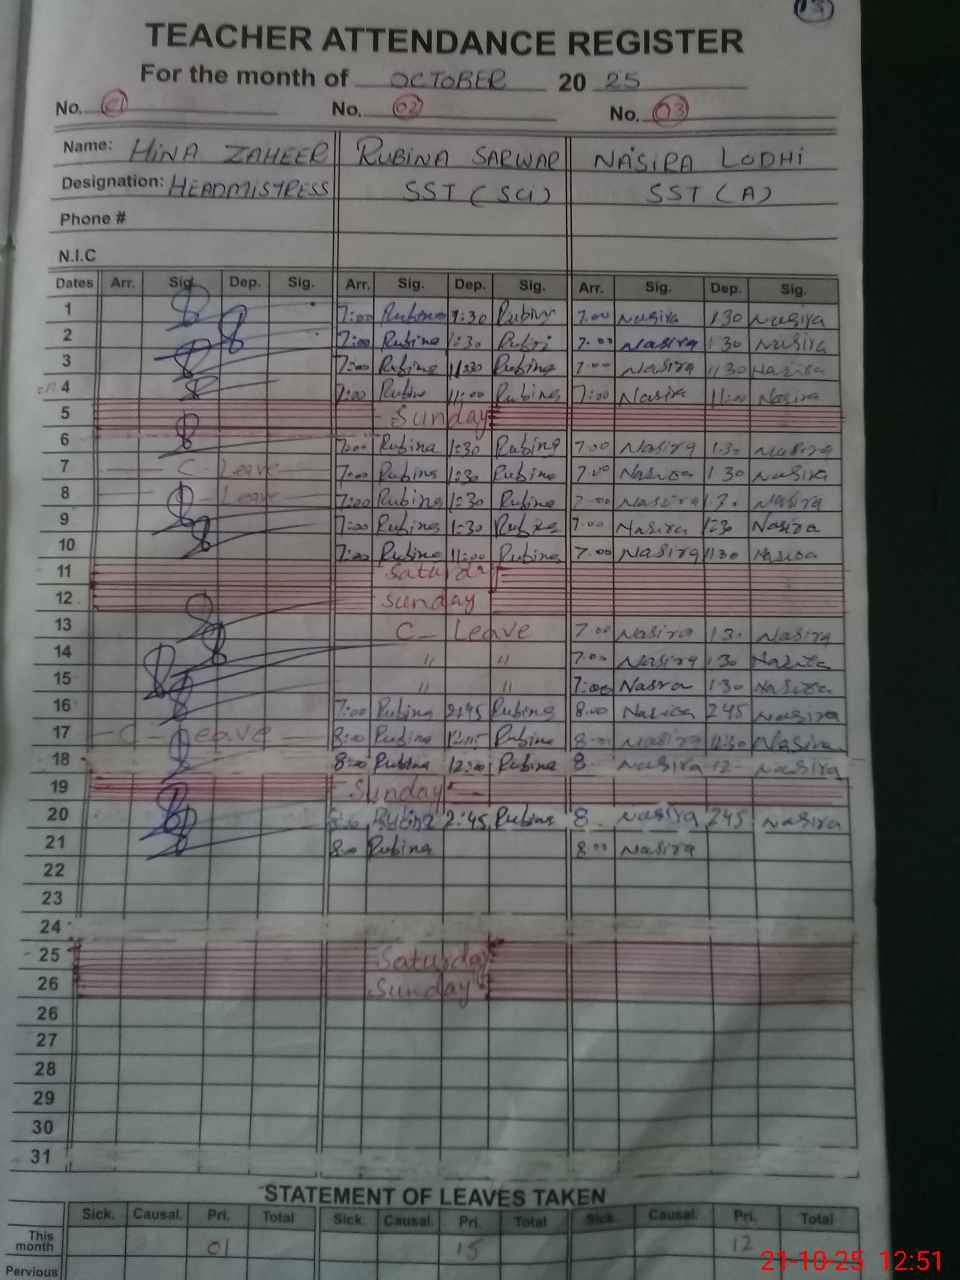 13
TEACHER ATTENDANCE REGISTER
For the month of OCTOBER 20 25
No. 01 No. 02 No. 03
Name: HINA ZAHEER RUBINA SARWAR NASIRA LODHI
Designation: HEADMISTRESS SST (SCI) SST (A)
Phone #
N.I.C
Dates Arr. Sig. Dep. Sig. Arr. Sig. Dep. Sig. Arr. Sig. Dep. Sig.
1 7:00 Rubina 1:30 Rubina 7.00 Nasira 1 30 Nasira
2 7:00 Rubina 1:30 Rubi 7.00 Nasira 1 30 Nasira
3 7:00 Rubina 11:30 Rubina 7.00 Nasira 11 30 Nasira
4 7:00 Rubina 11:00 Rubina 7:00 Nasira 11:00 Nasira
5 Sunday
6 7:00 Rubina 1:30 Rubina 7.00 Nasira 1 30 Nasira
7 C-Leave 7:00 Rubina 1:30 Rubina 7.00 Nasira 1 30 Nasira
8 Leave 7:00 Rubina 1:30 Rubina 7.00 Nasira 1 3. Nasira
9 7:00 Rubina 1:30 Rubina 7.00 Nasira 1:30 Nasira
10 7:00 Rubina 11:00 Rubina 7.00 Nasira 11 30 Nasira
11 Saturday
12 Sunday
13 C- Leave 7.00 Nasira 1 3. Nasira
14 " " 7.00 Nasira 1 30 Nasira
15 " " 7:00 Nasra 1 30 Nasira
16 7:00 Rubina 2:45 Rubina 8.00 Nasira 245 Nasira
17 C-Leave 8:00 Rubina Rubina 8.00 Nasira 11:30 Nasira
18 8:00 Rubina 12:00 Rubina 8 Nasira 12 Nasira
19 Sunday
20 8:00 Rubina 2:45 Rubina 8. Nasira 245 Nasira
21 8:00 Rubina 8 00 Nasira
22
23
24
25 Saturday
26 Sunday
26
27
28
29
30
31
STATEMENT OF LEAVES TAKEN
Sick. Causal. Pri. Total Sick. Causal. Pri. Total Sick. Causal. Pri. Total
This month 01 15 12
Pervious
21-10-25 12:51